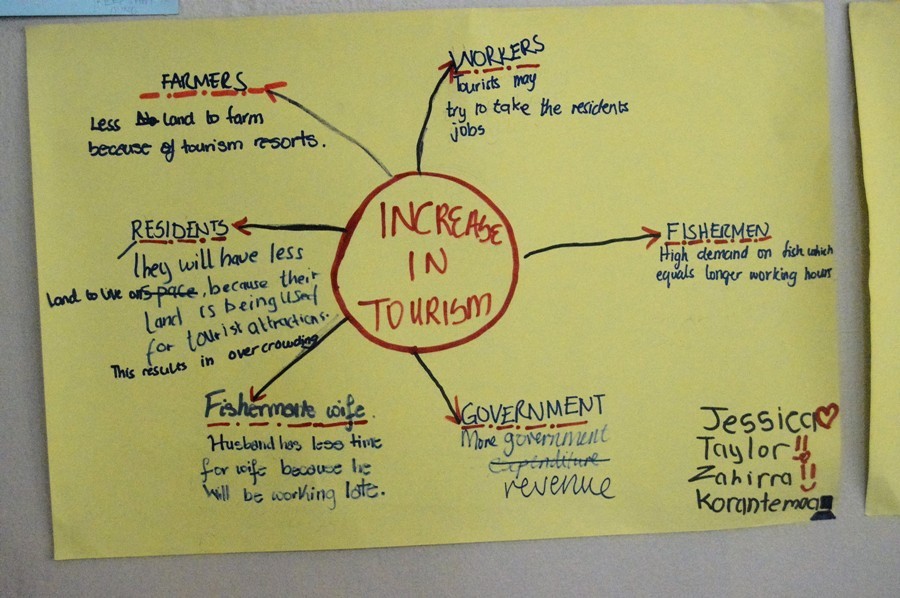 INCREASE
IN
TOURISM
FARMERS
Less land to farm
because of tourism resorts.
WORKERS
Tourists may
try to take the residents
jobs
FISHERMEN
High demand on fish which
equals longer working hours
RESIDENTS
They will have less
land to live on space, because their
land is being used
for tourist attractions.
This results in overcrowding
Fishermans wife
Husband has less time
for wife because he
will be working late.
GOVERNMENT
More government
expenditure
revenue
Jessica
Taylor!!
Zahirra!!
Korantemaa